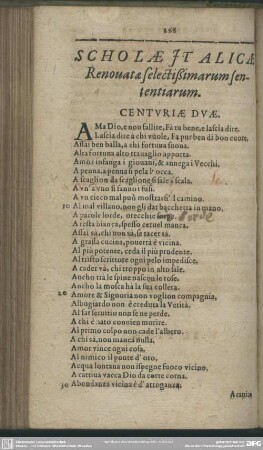 268
SCHOLÆ ITALICÆ
Renovatæ selectißimarum sen-
tentiarum.
CENTVRIÆ DVÆ.
AMa Dio, e non fallire, Fà tu bene, e lascia dire.
Lascia dire à chi vuole, Fa pur ben di bon cuore.
Assai ben balla, a chi fortuna suona.
Alta fortuna alto travaglio apporta.
Amor infanga i giovani, & annega i Vecchi.
A penna, a penna si pela l'occa.
A scaglion da scaglione si sale la scala.
A vn' a vno si fanno i fusi.
A vn cieco mal può mostrarsi 'l camino.
10 Al mal villano, non gli dar bacchetta in mano.
A parole lorde, orecchie sorde
A testa bianca, spesso cervel manca.
Assai sà, chi non sà, se tacer sà.
A grassa cucina, povertà è vicina.
Al più potente, ceda il più prudente.
Al tristo scrittore ogni pelo impedisce.
A cader và, chi troppo in alto sale.
Ancho tra le spine nascon le rose.
Ancho la mosca hà la sua collera.
20 Amore & Signoria non voglion compagnia,
Albugiardo non è creduta la Verità.
Al far servitio non se ne perde.
A chi è nato convien morire.
Al primo colpo non cade l'albero.
A chi sà, non manca nulla.
Amor vince ogni cosa.
Al nimico il ponte d' oro.
Acqua lontana non spegne fuoco vicino,
A cattiva vacca Dio da corte corna.
30 Abondanza vicina è d' arroganza.